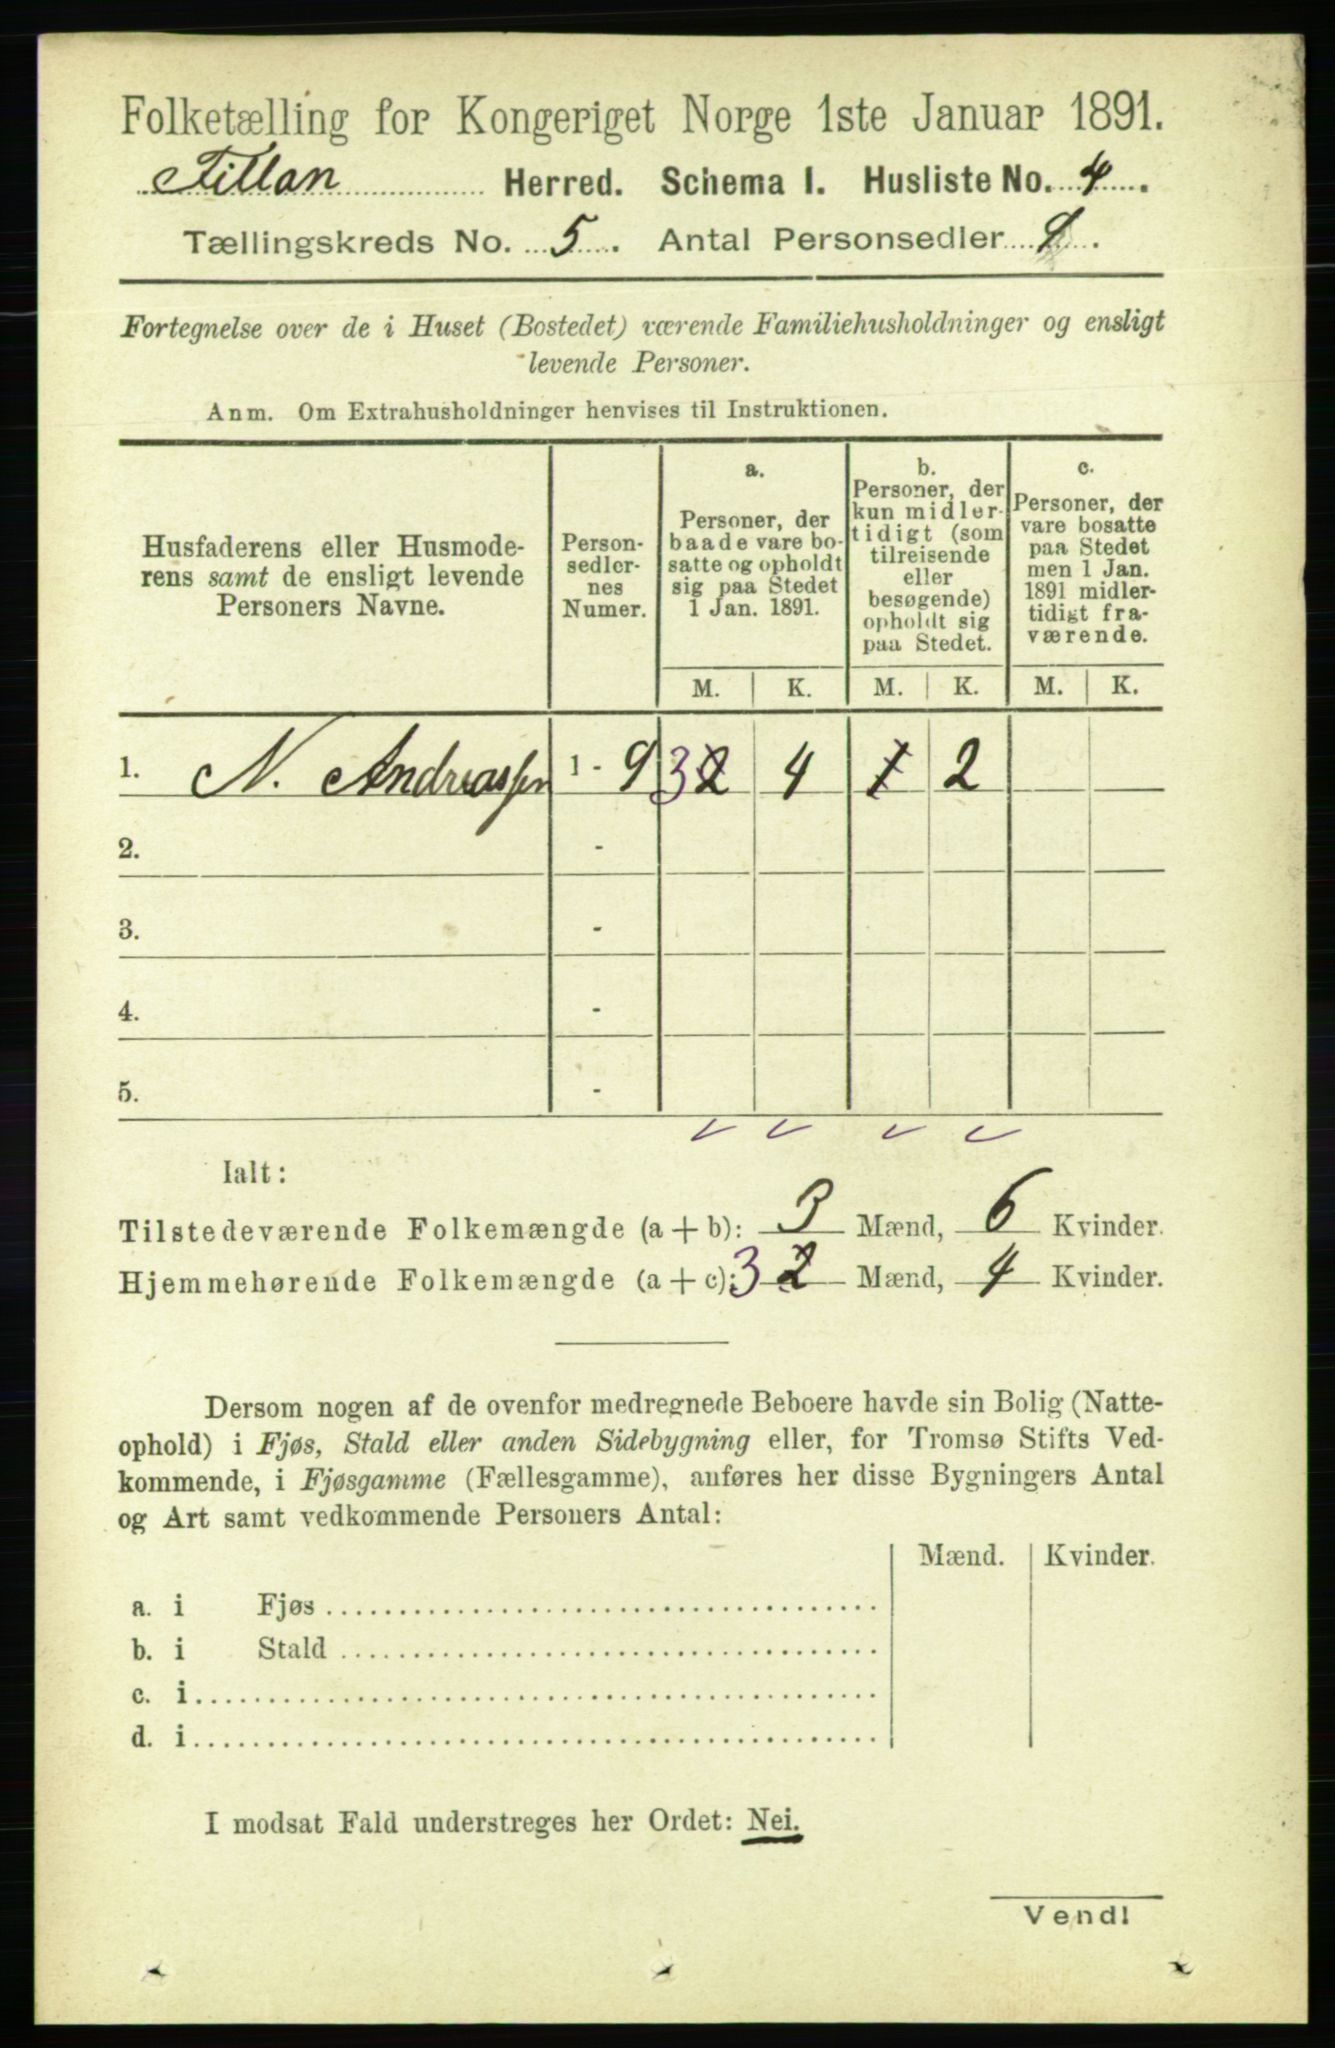 Folketælling for Kongeriget Norge 1ste Januar 1891.
Fillan Herred. Schema I. Husliste No. 4.
Tællingskreds No. 5. Antal Personsedler 9.
Fortegnelse over de i Huset (Bostedet) værende Familiehusholdninger og ensligt
levende Personer.
Anm. Om Extrahusholdninger henvises til Instruktionen.
Husfaderens eller Husmode-
rens samt de ensligt levende
Personers Navne.
Person-
sedler-
nes
Numer.
a.
Personer, der
baade vare bo-
satte og opholdt
sig paa Stedet
1 Jan. 1891.
b.
Personer, der
kun midler-
tidigt (som
tilreisende
eller
besøgende)
opholdt sig
paa Stedet.
c.
Personer, der
vare bosatte
paa Stedet
men 1 Jan.
1891 midler-
tidigt fra-
værende.
M. K. M. K. M. K.
1. N. Andreassen 1 - 9 3 2 4 1 2
2. -
3. -
4. -
5. -
Ialt:
Tilstedeværende Folkemængde (a + b): 3 Mænd, 6 Kvinder.
Hjemmehørende Folkemængde (a + c): 3 2 Mænd, 4 Kvinder.
Dersom nogen af de ovenfor medregnede Beboere havde sin Bolig (Natte-
ophold) i Fjøs, Stald eller anden Sidebygning eller, for Tromsø Stifts Ved-
kommende, i Fjøsgamme (Fællesgamme), anføres her disse Bygningers Antal
og Art samt vedkommende Personers Antal:
Mænd. Kvinder.
a. i Fjøs
b. i Stald
c. i
d. i
I modsat Fald understreges her Ordet: Nei.
Vend!